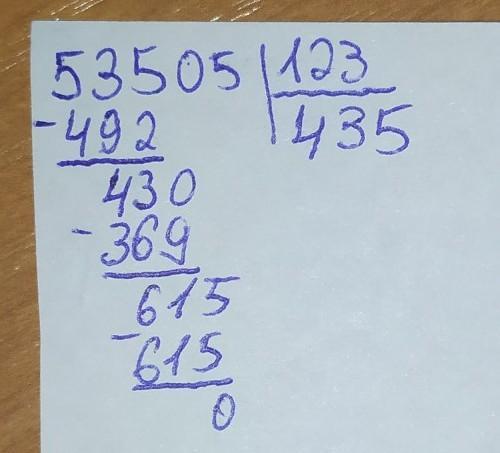 53505 | 123
- 492 435
430
- 369
615
- 615
0